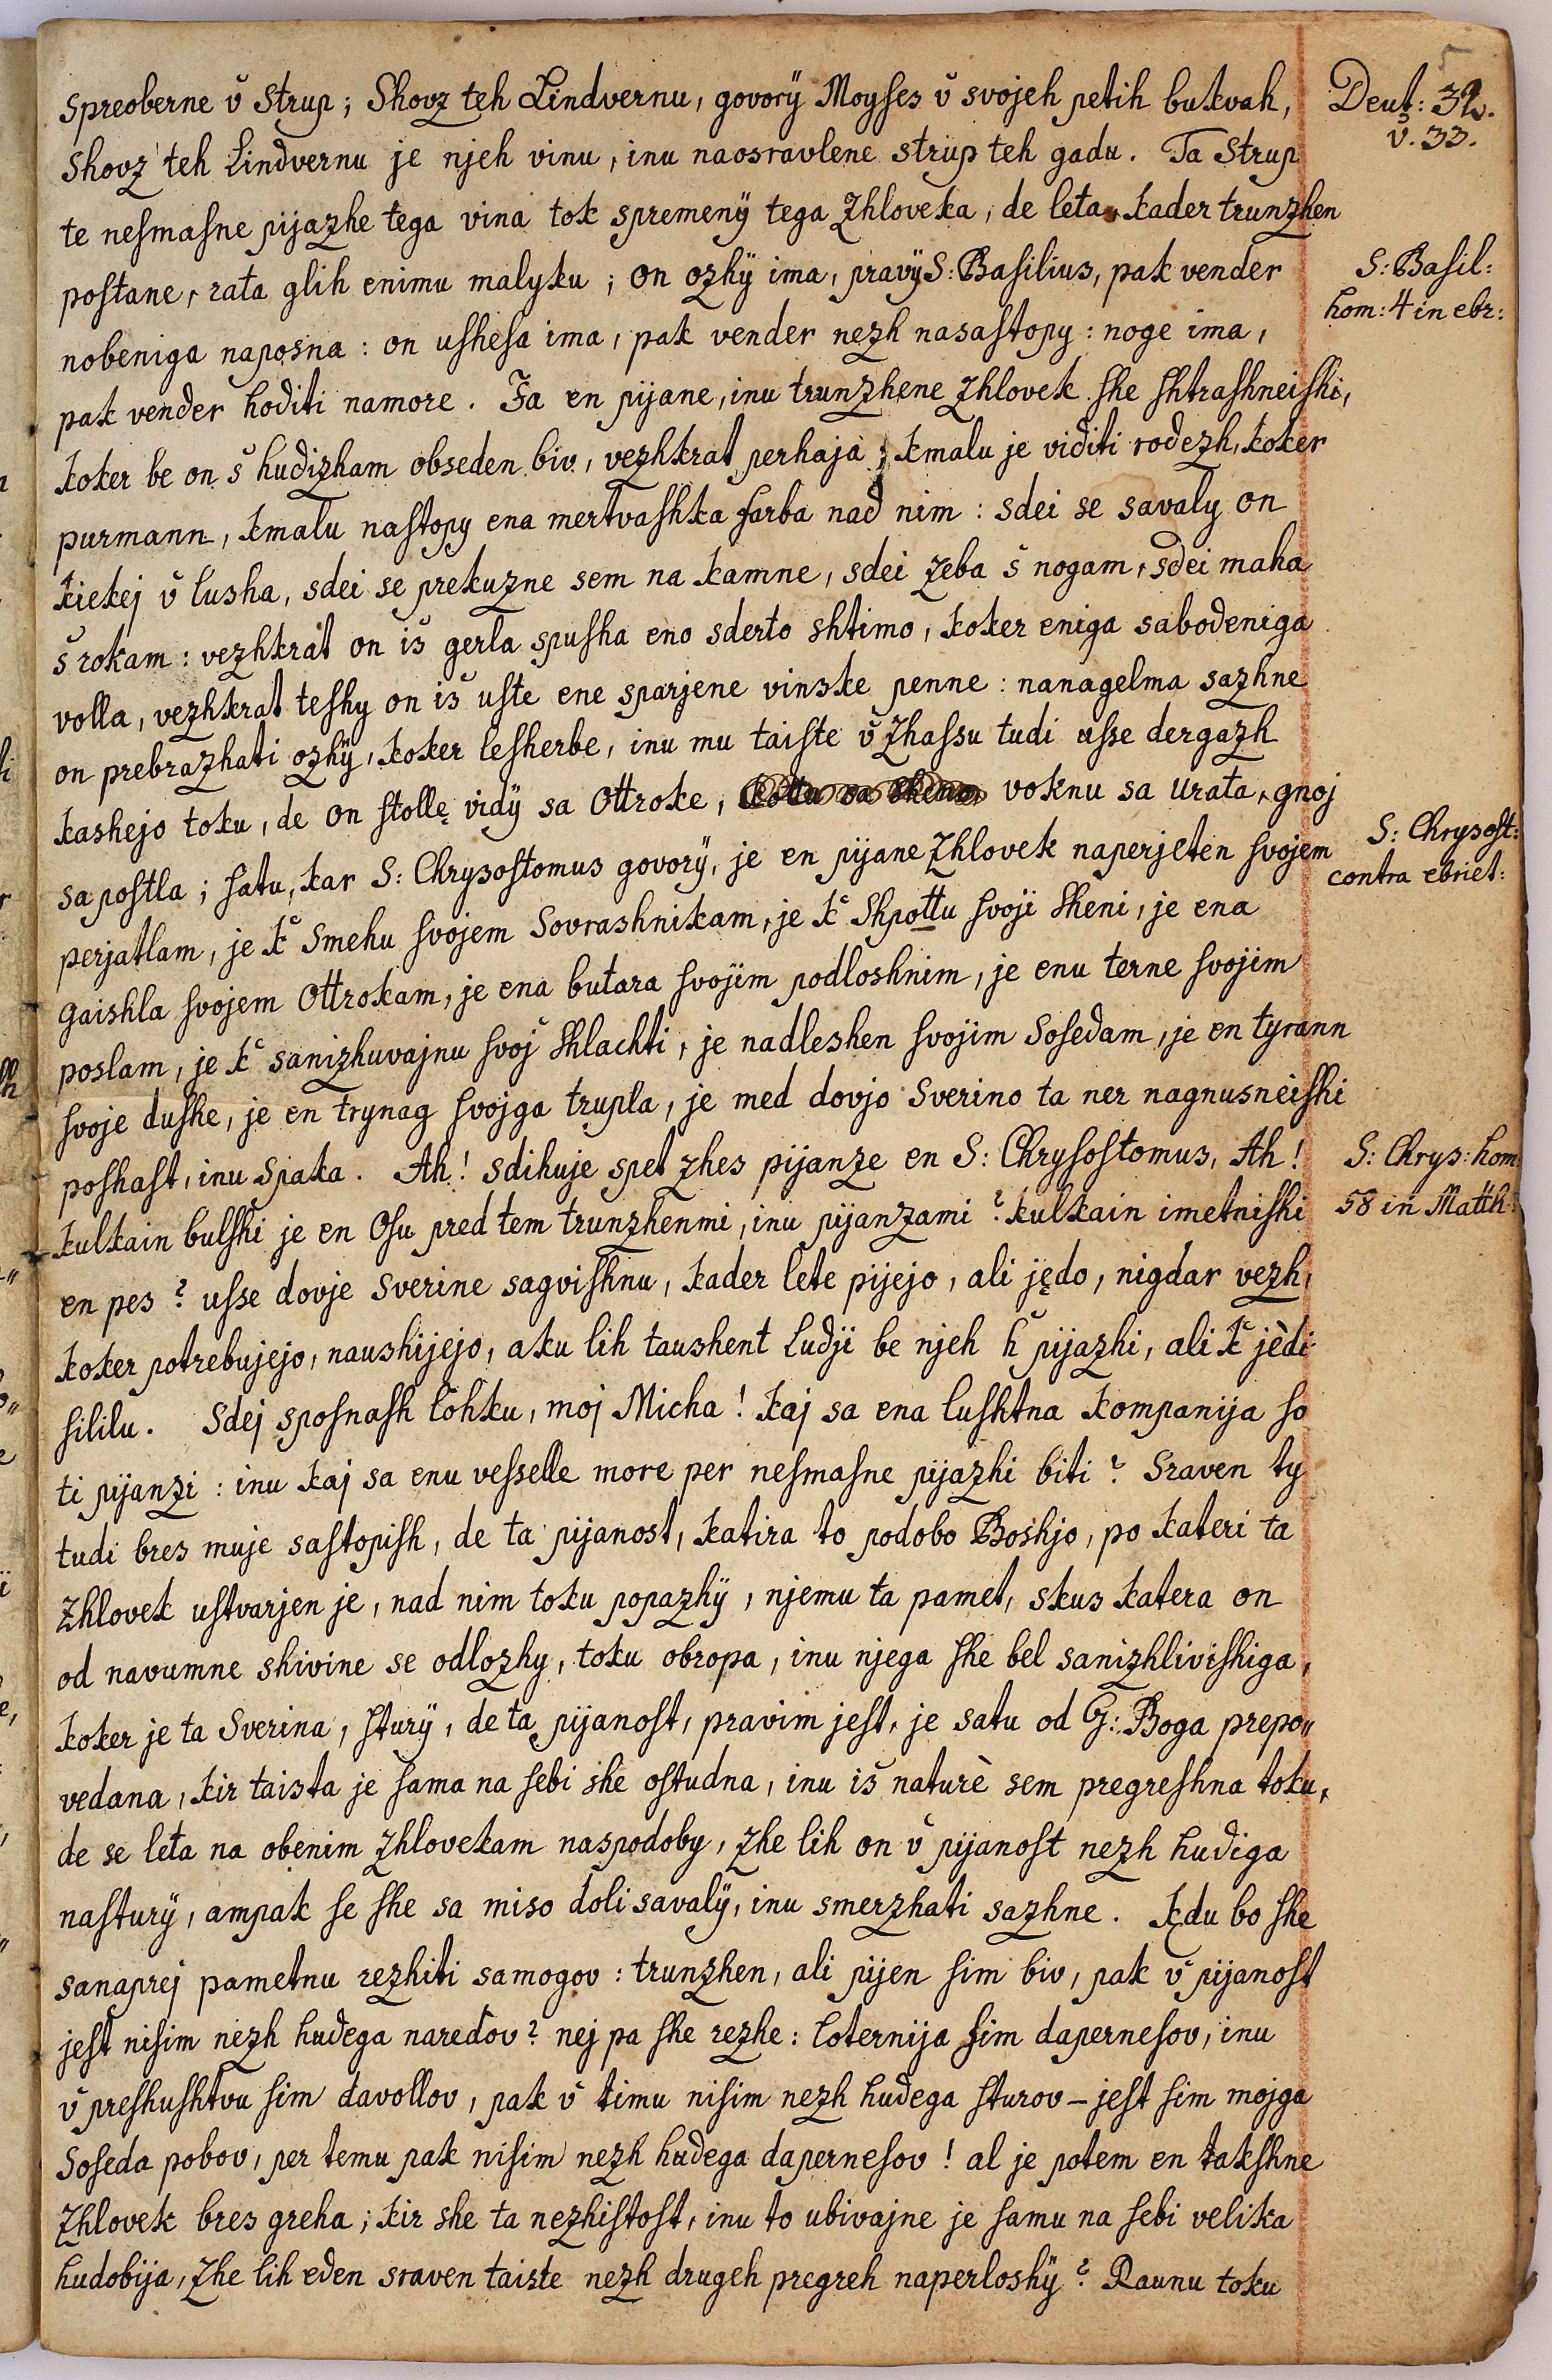 spreoberne v̌ Strup; Shovz teh Lindvernu, govorÿ Moyses v̌ svojeh petih bukvah,
Deut: 32.
v̌. 33.
Shovz teh Lindvernu je njeh vinu, inu naosravlene strup teh gadu. Ta Strup
te nesmasne pijazhe tega vina tok spremenÿ tega Zhloveka, de leta, kader trunzhen
postane, rata glih enimu malyku; on ozhÿ ima, pravÿ S: Basilius, pak vender
S: Basil:
hom: 4 in ebr:
nobeniga naposna: on ushesa ima, pak vender nezh nasastopy: noge ima,
pak vender hoditi namore. Ja en pijane, inu trunzhene Zhlovek she shtrashneishi,
koker be on š hudizham obseden biv, vezhkrat perhaja; kmalu je viditi rodezh, koker
purmann, kmalu nastopy ena mertvashka farba nad nim: sdei se savaly on
kiekej v̌ lusha, sdei se prekuzne sem na kamne, sdei zeba š nogam, sdei maha
š rokam: vezhkrat on iš gerla spusha eno sderto shtimo, koker eniga sabodeniga
volla, vezhkrat teshy on iš uste ene sparjene vinske penne: nanagelma sazhne
on prebrazhati ozhÿ, koker lesherbe, inu mu taiste v̌ Zhassu tudi usse dergazh
kashejo toku, de on stollę vidÿ sa Ottroke, voknu sa Urata, gnoj
sa postla; satu, kar S: Chrysostomus govorÿ, je en pijane Zhlovek naperjeten svojem
S: Chrysost:
contra ebriet:
perjatlam, je k̆ Smehu svojem Sovrashnikam, je k̆ Shpottu svoji Sheni, je ena
gaishla svojem Ottrokam, je ena butara svojim podloshnim, je enu terne svojim
poslam, je k̆ sanizhuvajnu svoj Shlachti, je nadleshen svojim Sosedam, je en tyrann
svoje dushe, je en trynag svojga trupla, je med dovjo Sverino ta ner nagnusneishi
poshast, inu Spaka. Ah! sdihuje spet zhes pijanze en S: Chrysostomus, Ah!
S: Chrys: hom:
58 in Matth:
kulkain bulshi je en Osu pred tem trunzhenmi, inu pijanzami? kulkain imetnishi
en pes? usse dovje Sverine sagvishnu, kader lete pijejo, ali jędo, nigdar vezh,
koker potrebujejo, naushijejo, aku lih taushent Ludji be njeh h̆ pijazhi, ali k̆ jèdi
sililu. Sdej sposnash lohku, moj Micha! kaj sa ena lushtna kompanija so
ti pijanzi: inu kaj sa enu vesselle more per nesmasne pijazhi biti? Sraven ty
tudi bres muje sastopish, de ta pijanost, katira to podobo Boshjo, po kateri ta
Zhlovek ustvarjen je, nad nim toku popazhÿ, njemu ta pamet, skus katera on
od navumne shivine se odlozhy, toku obropa, inu njega she bel sanizhlivishiga,
koker je ta Sverina, sturÿ, de ta pijanost, pravim jest, je satu od G: Boga prepo„
vedana, kir taista je sama na sebi she ostudna, inu iš naturè sem pregreshna toku,
de se leta na obenim Zhlovekam naspodoby, Zhe lih on v̌ pijanost nezh hudiga
nasturÿ, ampak se she sa miso doli savalÿ, inu smerzhati sazhne. kędu bo she
sanaprej pametnu rezhiti samogov: trunzhen, ali pijen sim biv, pak v̌ pijanost
jest nisim nezh hudega naredov? nej pa she rezhe: loternija sim dapernesov, inu
v̌ preshushtvu sim davollov, pak v̌ timu nisim nezh hudega sturov – jest sim mojga
Soseda pobov, per temu pak nisim nezh hudega dapernesov! al je potem en takshne
Zhlovek bres greha; kir she ta nezhistost, inu to ubivajne je samu na sebi velika
hudobija, Zhe lih eden sraven taiste nezh drugeh pregreh naperloshÿ? Raunu toku